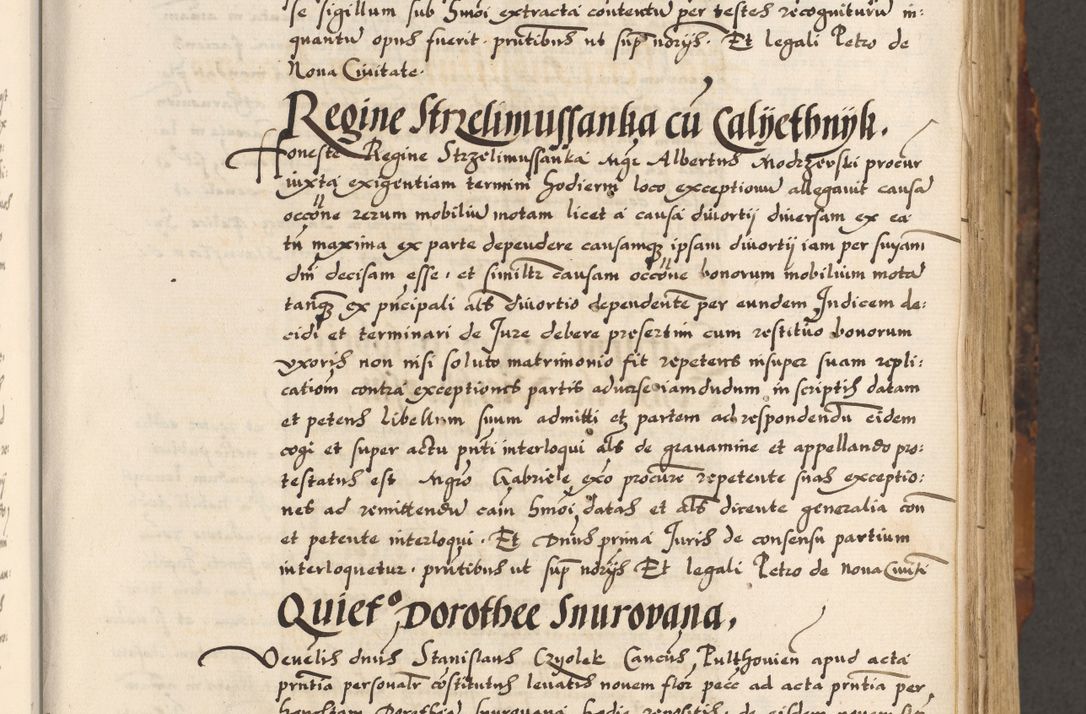 se sigillum sub hmoi extracta contentu per testes recognituru in:
quantu opus fuerit. pntibus ut sup norijs. Et legali Petro de
Nova Civitate.
Regine Strzelimussanka cu Calyethnyk.
Honeste Regine Strzelimussanka Mgr Albertus Modrzevski procur
iuxta exigentiam termini hodierni loco exceptionu allegavit causa
occone rerum mobiliu motam licet a causa divortij diversam ex ea
tn maxima ex parte dependere causamq ipsam divortij iam per suam
dni decisam esse, et similr causam occone bonorum mobilium mota
tanq ex pncipali als divortio dependente per eundem Judicem de:
cidi et terminari de Jure debere presertim cum restitutio bonorum
uxoris non nisi soluto matrimonio fit repetens insuper suam repli:
cationi contra exceptiones partis adverse iamdudum in scriptis datam
et petens libellum suum admitti et partem ad respondendu eidem
cogi et super actu pnti interloqui als de gravamine et appellando pro:
testatus est Mgro Gabriele exo procure repetente suas exceptio:
nes ad remittendu cam hmoi datas et als dicente generalia con
et petente interloqui. Et Dnus prima Juris de consensu partium
interloquetur. pntibus ut sup norijs Et legali Petro de Nova Civiti
Quiet⁰ Dorothee Snurovana.
Venelis dnus Stanislaus Czyolek Cancus Pulthovien apud acta
pntia personalr costitutus levatis novem flor pecc ad acta pntia per
Dorothea Snurovana hodie repositis de eisdem novem